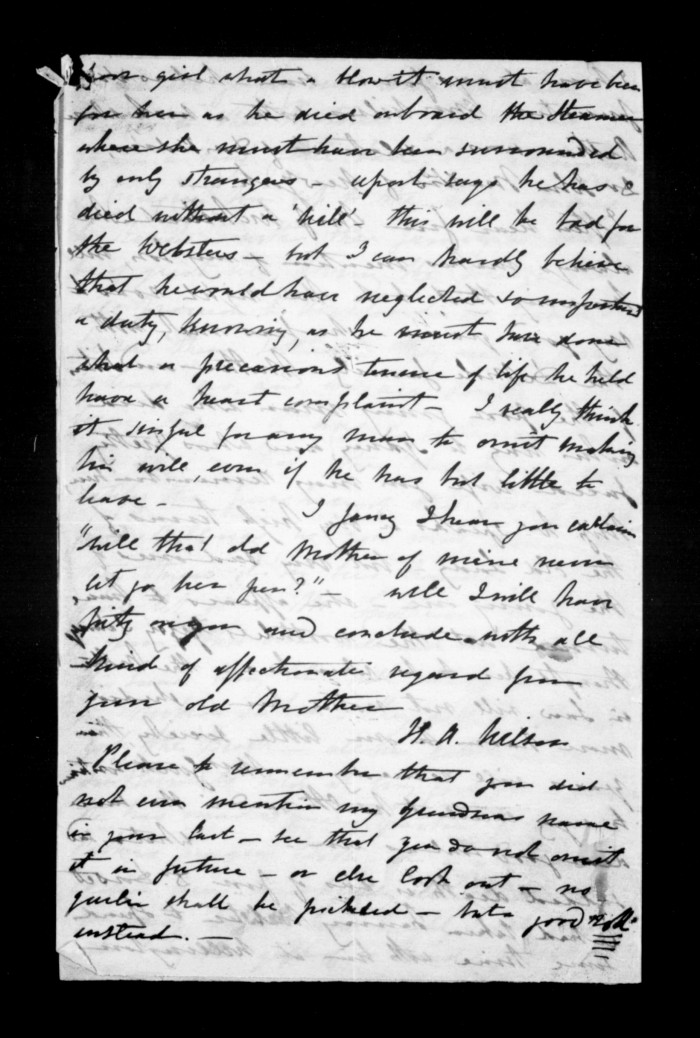 poor girl what a blow it must have been
for her as he died onboard the Steamer
where she must have been surrounded
by only strangers - report says he has
died without a 'Will'. this will be bad for
the Websters - but I can hardly believe
that he would have neglected so important
a duty, knowing, as he must have done
what a precarious tenure of life he held
have a heart complaint - I really think
it sinful for any man to omit making
his will, even if he has but little to
leave - I fancy I hear you exclaim
"will that old Mother of mine never
let go her pen?" - well I will have
pity on you and conclude with all
kind of affectionate regard from
your old Mother
H. A. Wilson
Please to remember that you did
not even mention my Grandsons name
in your last - see that you do not omit
it in future - or else look out - no
shall be - but a good
instead. -